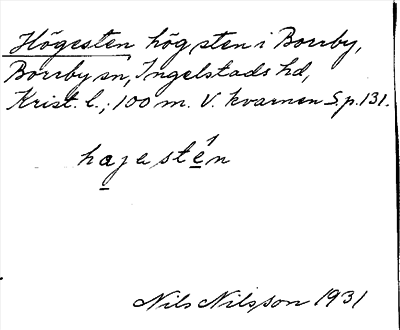 Högesten hög sten i Borrby,
Borrby sn, Ingelstads hd,
Krist. l.; 100 m. V. kvarnen S.p. 131.
hajestén
Nils Nilsson 1931